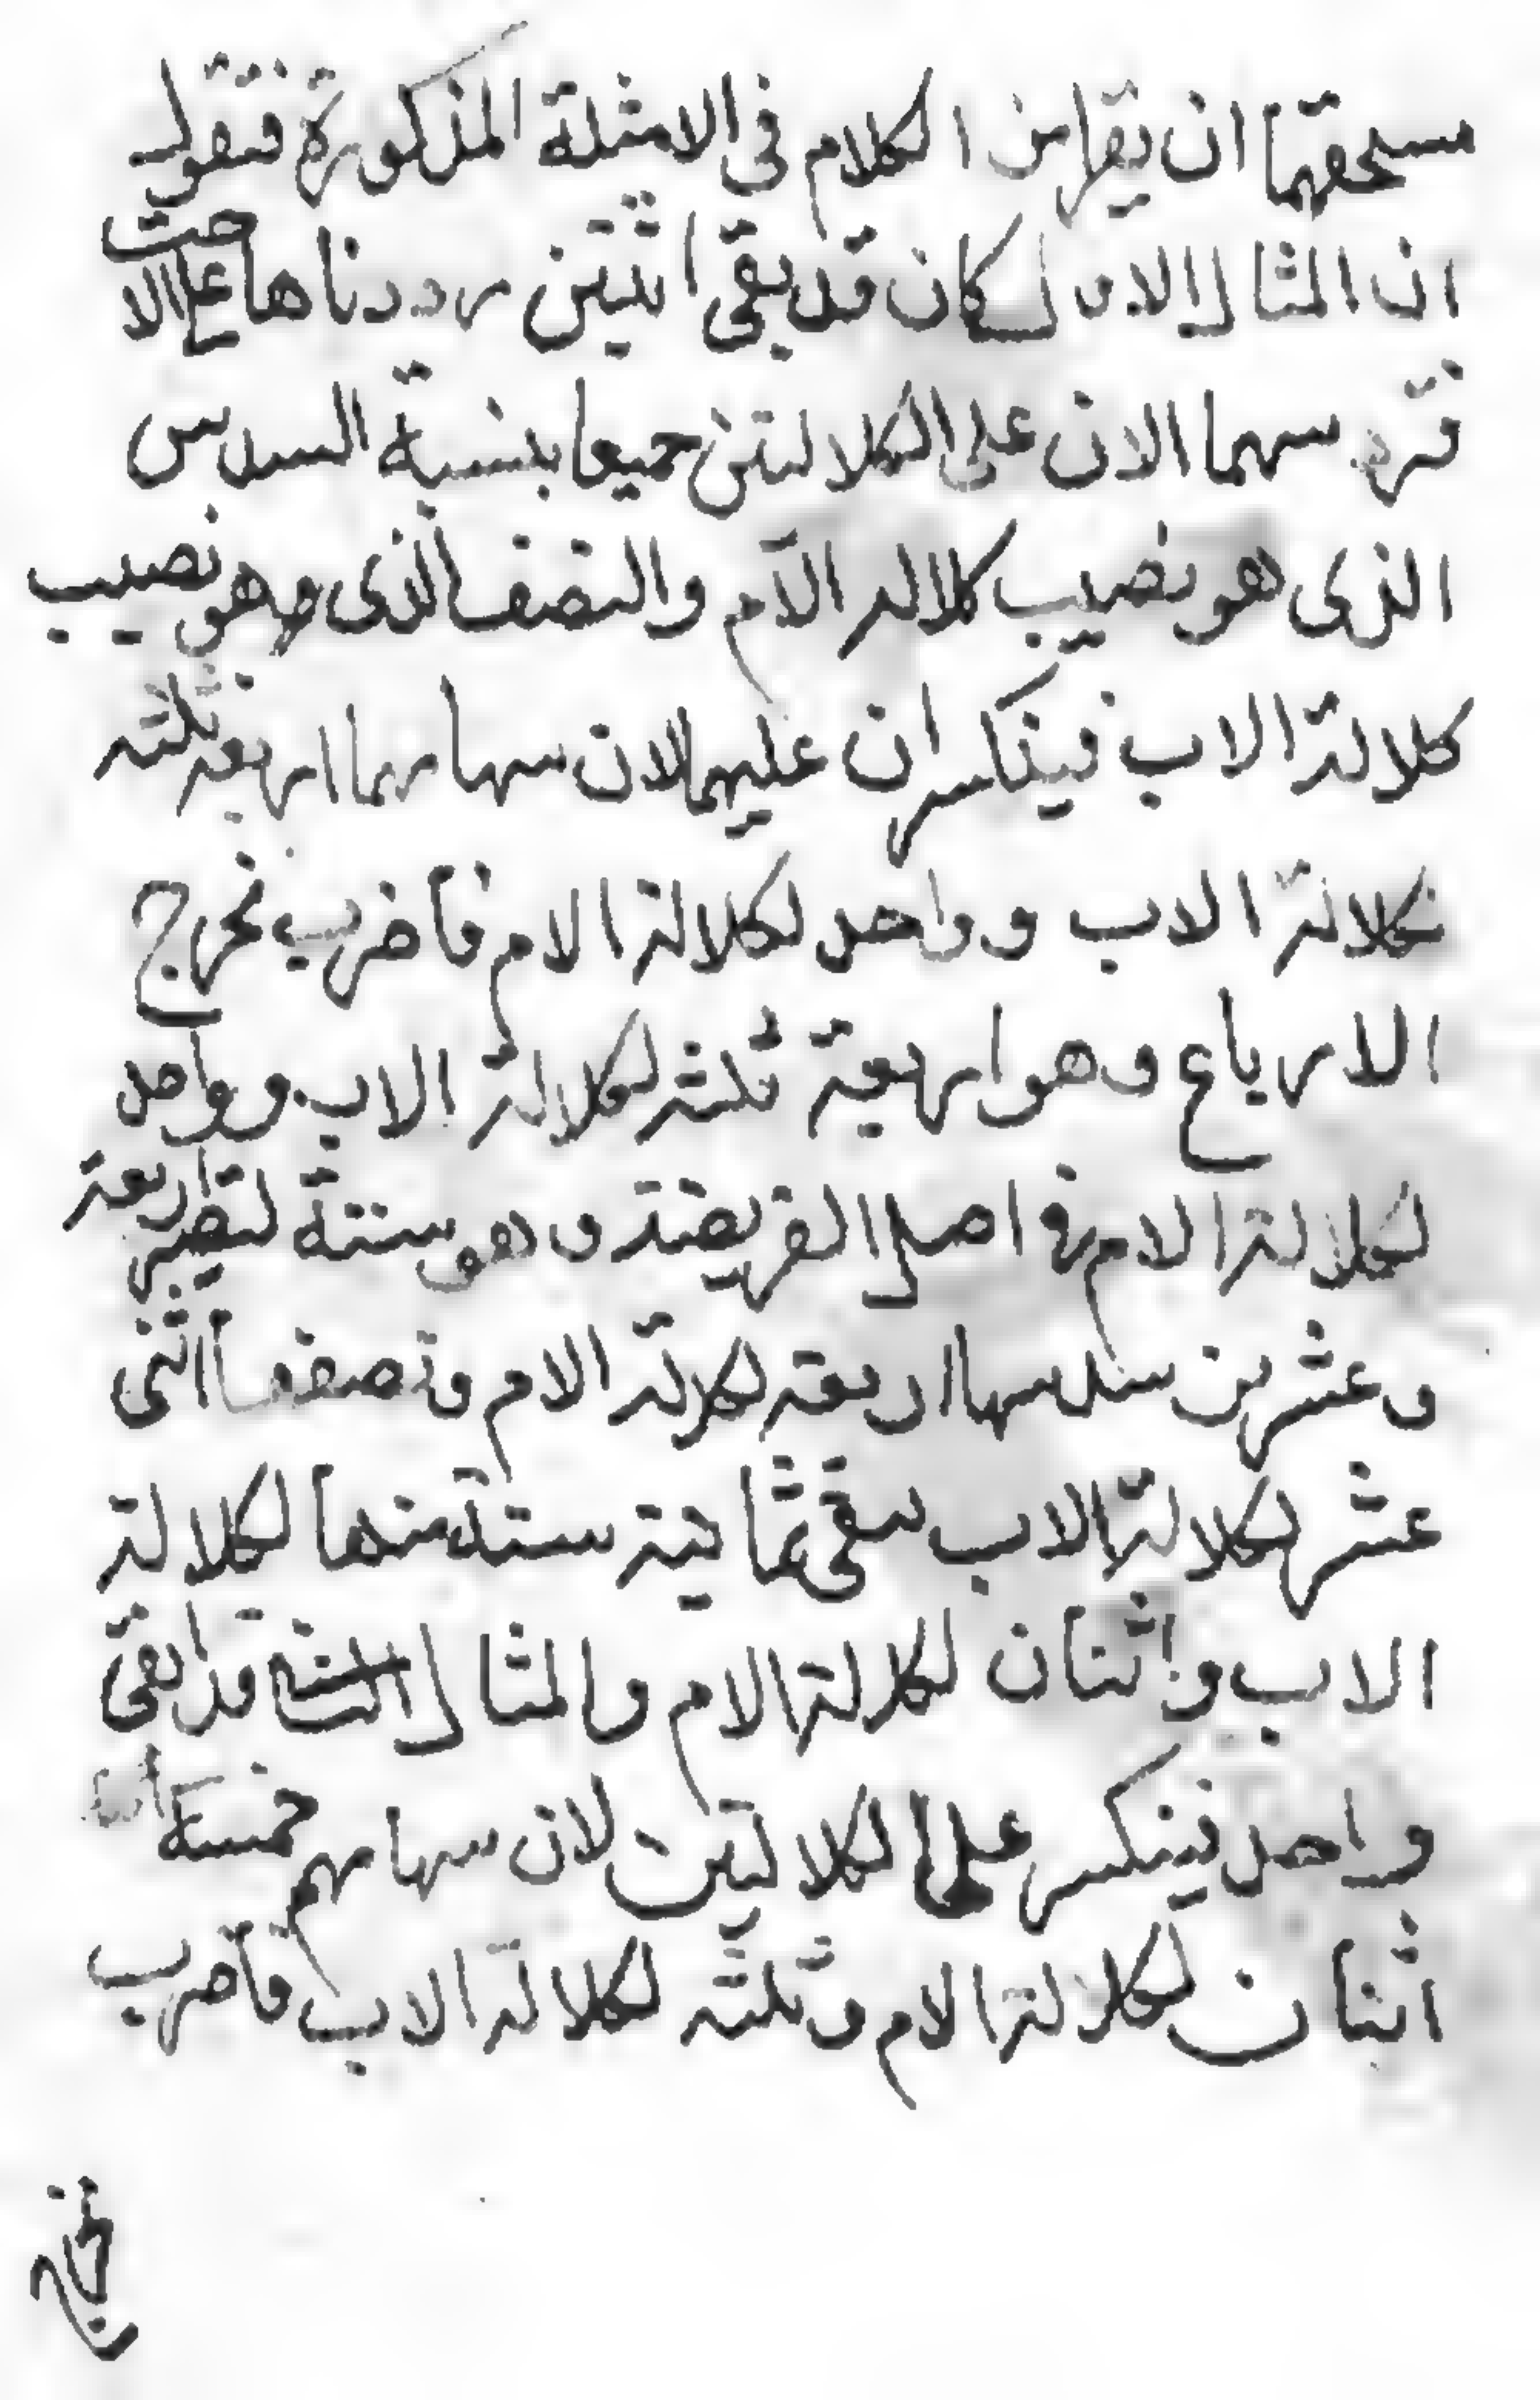 مستحقهما ان يقارن الكلام فى الامثلة المذكورة فتقول
ان المثال الاول كان قد بقى اثنين رددناها على الاخت
فترد سهما الان على الكلالتين جميعا بنسبة السدس
الذى هو نصيب كلالة الام والنصف الذى وهو نصيب
كلالة الاب فينكسران عليهما لان سهامهما اربعة ثلثه
لكلالة الاب وواحد لكلالة الام فاضرب مخرج
الارباع وهو اربعة ثلثه لكلالة الاب وواحد
لكلالة الام فى اصل الفريضة وهو ستة لتصير اربعة
وعشرين سدسها اربعة لكلالة الام ونصفها اثنى
عشر لكلالة الاب يبقى ثمانية ستة منها لكلالة
الاب واثنان لكلالة الام والمثال الثانى قد ابقى
واحد فينكسر على الكلالتين لان سهامهم خمسة
اثنان لكلالة الام وثلثه لكلالة الاب فاضرب
مخرج